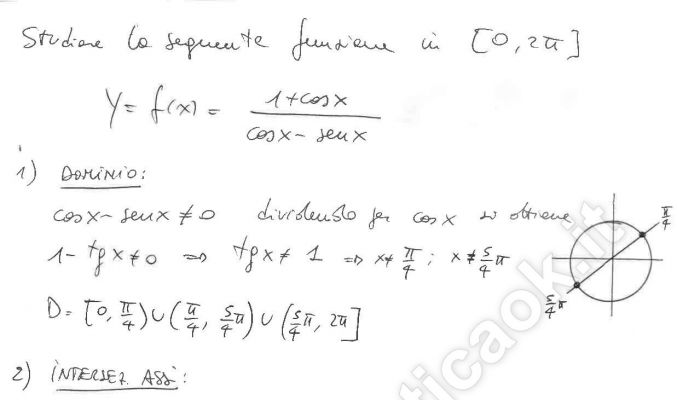 Studiare la seguente funzione in [0, 2π]
Y = f(x) = (1+cosx)/(cosx - senx)
1) DOMINIO:
cosx - senx ≠ 0 dividendo per cosx si ottiene
1 - tgx ≠ 0 ⇒ tgx ≠ 1 ⇒ x ≠ π/4 ; x ≠ 5/4 π
π/4
5/4 π
D = [0, π/4) ∪ (π/4, 5/4 π) ∪ (5/4 π, 2π]
2) INTERSEZ. ASSI:
aticaok.it